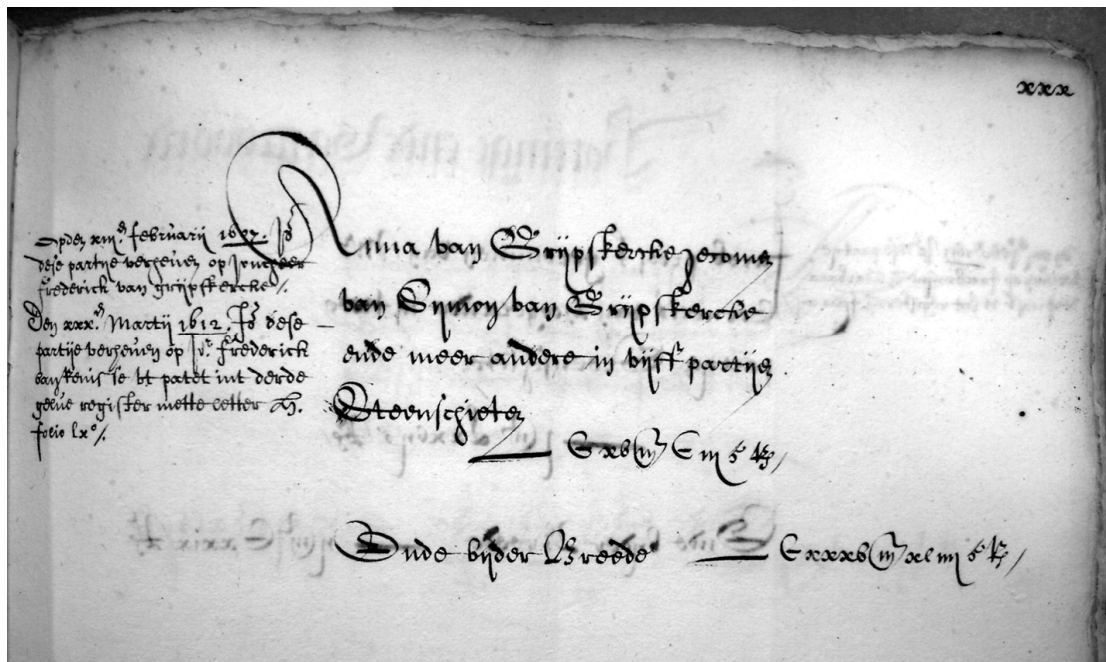 xxx
Opden xiii.e februarij 1607. Is
dese partije verheven op Joncheer
frederick van grijpskercke /.
Den xxx.en Martij 1612. Is dese
partije verheven op Jr. frederick
se vt patet int derde
register mette letter H.
folio lxo/.
Anna van Grijpskercke
van Symon van Grijpskercke
ende meer andere in vijff partijen
Steenschieten
Ende bijder Breede